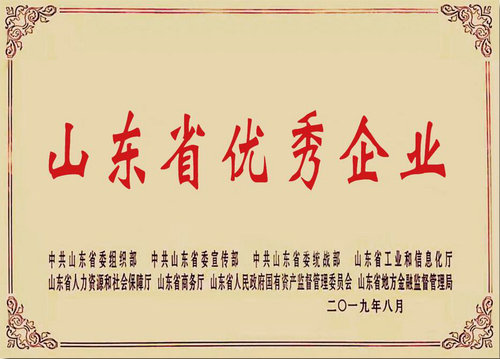 山东省优秀企业
中共山东省委组织部 中共山东省委宣传部 中共山东省委统战部 山东省工业和信息化厅
山东省人力资源和社会保障厅 山东省商务厅 山东省人民政府国有资产监督管理委员会 山东省地方金融监督管理局
二〇一九年八月